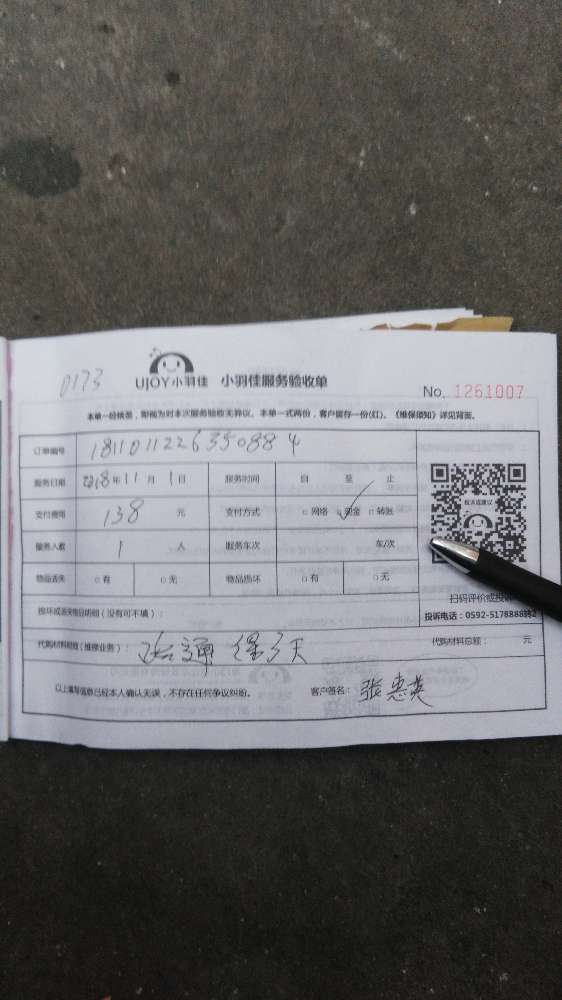 0173
UJOY小羽佳 小羽佳服务验收单
No. 1261007
本单一经核签，即视为对本次服务验收无异议。本单一式两份，客户留存一份(红)。《维保须知》详见背面。
订单编号 1811011226350884
服务日期 2018年11月1日 服务时间 自 至 止
支付费用 138 元 支付方式 □网络 ☑现金 □转账
服务人数 1 人 服务车次 车/次
物品丢失 □有 □无 物品损坏 □有 □无
投诉或建议
扫码评价或投诉
投诉电话：0592-5178888转2
损坏或丢失物品明细（没有可不填）：
代购材料明细(维修业务)： 通 天 代购材料总额： 元
以上填写信息已经本人确认无误，不存在任何争议纠纷。 客户签名：张惠英